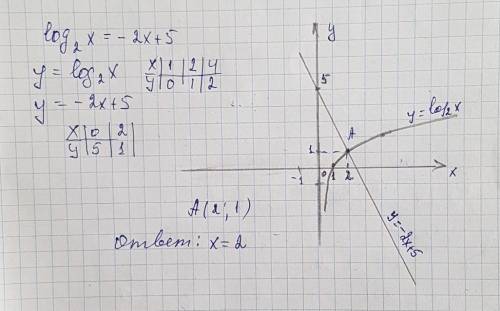 log₂x = -2x+5
y = log₂x
x | 1 | 2 | 4
y | 0 | 1 | 2
y = -2x+5
x | 0 | 2 |
y | 5 | 1 |
A(2; 1)
Ответ: x = 2
y
5
y = log₂x
A
1
0 1 2
x
-1
y = -2x+5